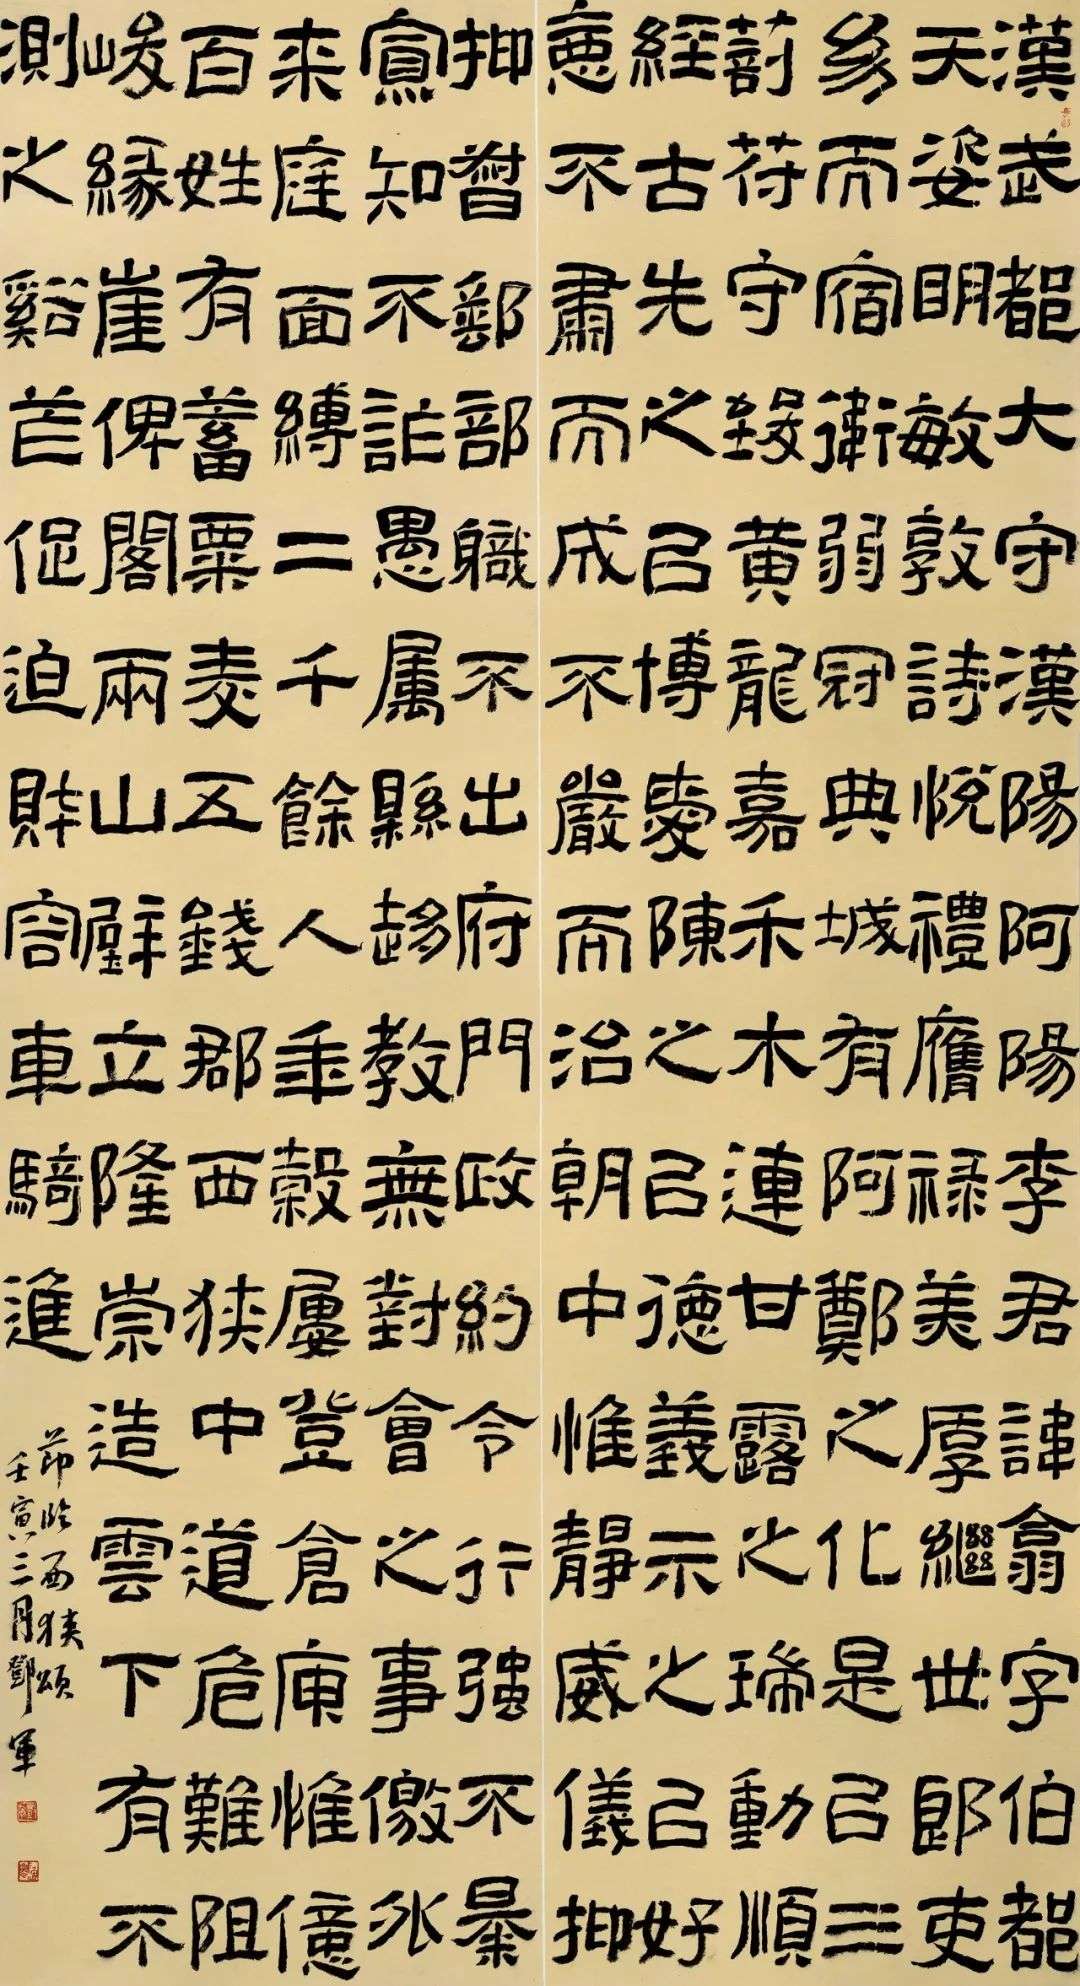 漢武都大守漢陽阿陽李君諱翕字伯都
天姿明敏敦詩悅禮膺禄美厚繼世郎吏
幼而宿衛弱冠典城有阿鄭之化是㠯三
剖苻守致黃龍嘉禾木連甘露之瑞動順
經古先之㠯博愛陳之㠯德義示之㠯好
惡不肅而成不嚴而治朝中惟靜威儀抑
抑督郵部職不出府門政約令行强不暴
寡知不詐愚属縣趍教無對會之事儌外
来庭面縛二千餘人年穀屢登倉庾惟億
百姓有蓄粟麦五錢郡西狹中道危難阻
峻緣崖俾閣兩山壁立隆崇造雲下有不
測之谿芒促迫財容車騎進
節臨西狹頌
壬寅三月鄧軍